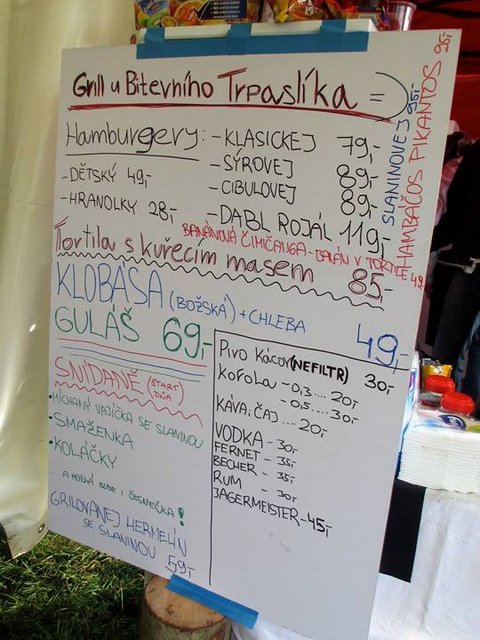 Grill u Bitevního Trpaslíka =)
Hamburgery: - KLASICKEJ 79,-
- SÝROVEJ 89,-
- CIBULOVEJ 89,-
- DABL ROJÁL 119,-
SLANINOVEJ 95,-
HAMBÁČOS PIKANTOS 95,-
- DĚTSKÝ 49,-
- HRANOLKY 28,-
BANÁNOVÁ ČIMIČANGA - BANÁN V TORTILE 49,-
Tortila s kuřecím masem 85,-
KLOBÁSA (BOŽSKÁ) + CHLEBA 49,-
GULÁŠ 69,-
SNÍDANĚ (START DŇA)
• MÍCHANÝ VAJÍČKA SE SLANINOU
• SMAŽENKA
• KOLÁČKY
... A MOŽNÁ BUDE I ČESNEČKA!
GRILOVANEJ HERMELÍN
SE SLANINOU 59,-
PIVO KÁCOV (NEFILTR) 30,-
KOFOLA - 0,3 .... 20,-
- 0,5 .... 30,-
KÁVA, ČAJ .... 20,-
VODKA - 30,-
FERNET - 35,-
BECHER - 35,-
RUM - 30,-
JÄGERMEISTER - 45,-